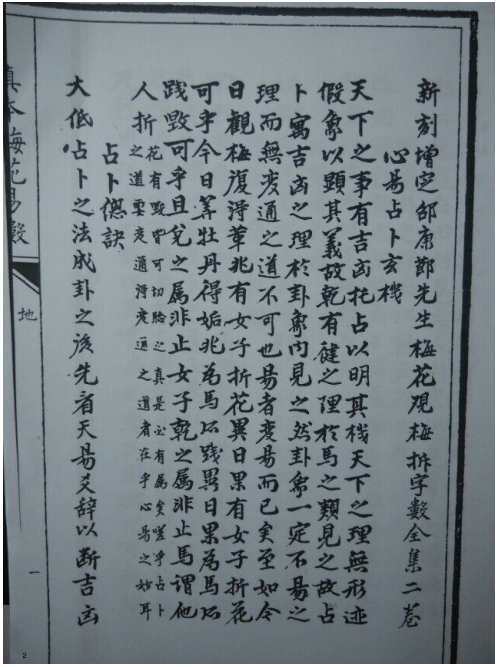 新刻增定邵康節先生梅花观梅拆字數全集二卷
心易占卜玄機
天下之事有吉凶托占以明其机天下之理無形迹
假象以顕其義故乾有健之理於馬之類見之故占
卜寓吉凶之理於卦象内見之然卦象一定不易之
理而無变通之道不可也易者变易而已矣至如今
日觀梅復得革兆有女子折花異日果有女子折花
可乎今日筭牡丹得姤兆為馬所踐異日果為馬所
践毀可乎且兌之属非止女子乾之属非止馬謂他
人折花有毀皆可切驗之真是必有属矣嗟乎占卜
之道要变通得变通之道者在乎心易之妙耳
占卜偬訣
大低占卜之法成卦之後先看天易爻辞以断吉凶
真本梅花易數
地
一
2